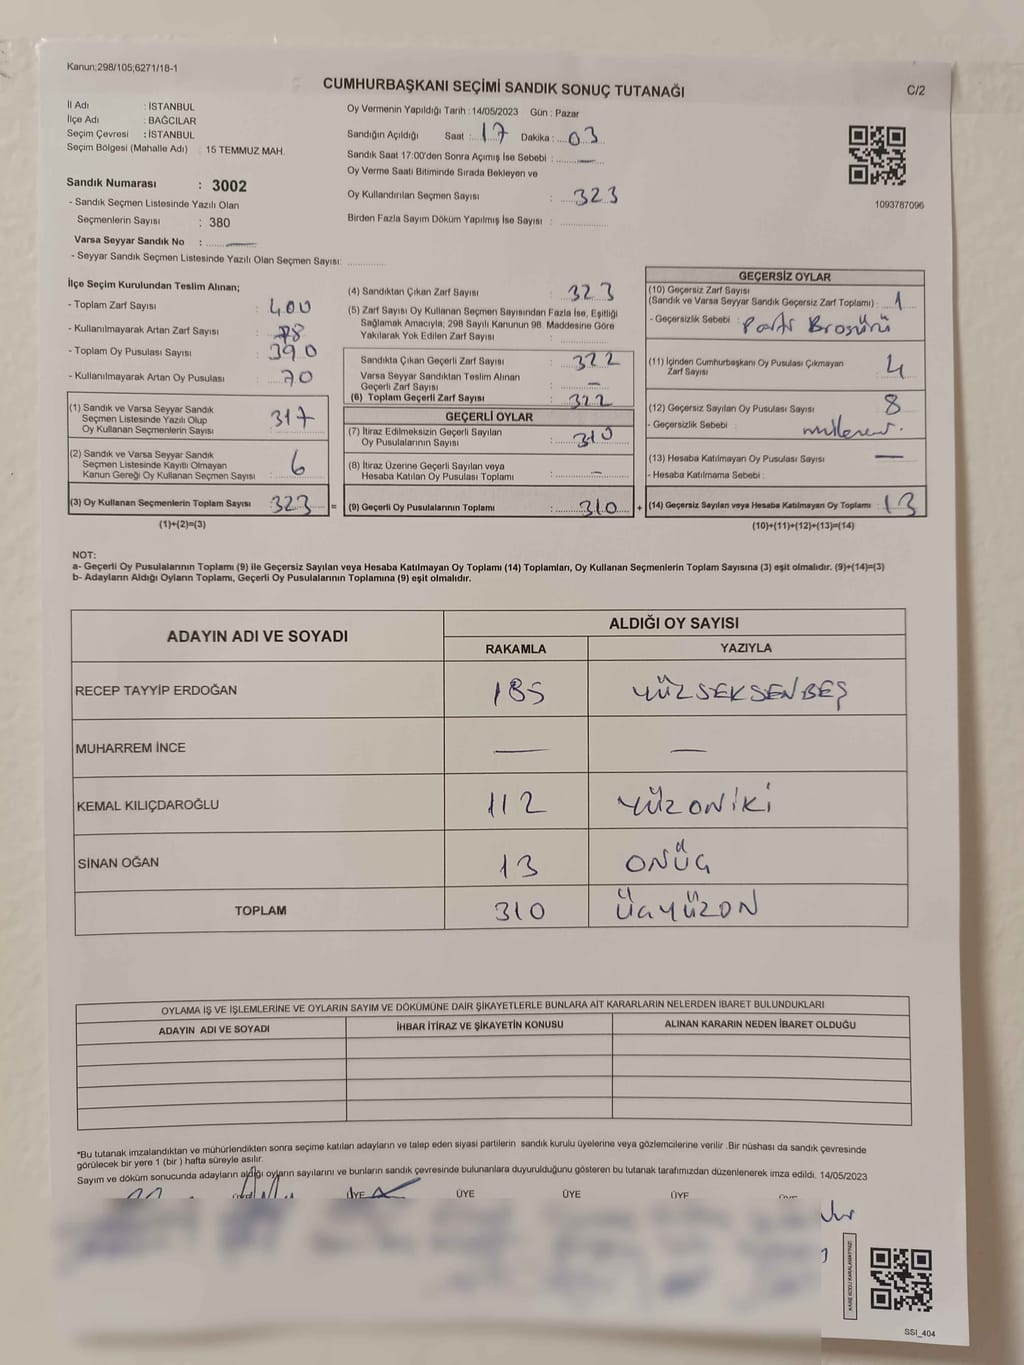 Kanun;298/105;6271/18-1
CUMHURBAŞKANI SEÇİMİ SANDIK SONUÇ TUTANAĞI
C/2
İl Adı : İSTANBUL
İlçe Adı : BAĞCILAR
Seçim Çevresi : İSTANBUL
Seçim Bölgesi (Mahalle Adı) 15 TEMMUZ MAH.
Sandık Numarası : 3002
- Sandık Seçmen Listesinde Yazılı Olan
Seçmenlerin Sayısı : 380
Varsa Seyyar Sandık No : —
- Seyyar Sandık Seçmen Listesinde Yazılı Olan Seçmen Sayısı:
Oy Vermenin Yapıldığı Tarih : 14/05/2023 Gün : Pazar
Sandığın Açıldığı Saat : 17 Dakika : 03
Sandık Saat 17:00'den Sonra Açımış İse Sebebi : —
Oy Verme Saati Bitiminde Sırada Bekleyen ve
Oy Kullandırılan Seçmen Sayısı : 323
Birden Fazla Sayım Döküm Yapılmış İse Sayısı :
1093787096
İlçe Seçim Kurulundan Teslim Alınan;
- Toplam Zarf Sayısı : 400
- Kullanılmayarak Artan Zarf Sayısı : 78
- Toplam Oy Pusulası Sayısı : 390
- Kullanılmayarak Artan Oy Pusulası : 70
(1) Sandık ve Varsa Seyyar Sandık
Seçmen Listesinde Yazılı Olup
Oy Kullanan Seçmenlerin Sayısı : 317
(2) Sandık ve Varsa Seyyar Sandık
Seçmen Listesinde Kayıtlı Olmayan
Kanun Gereği Oy Kullanan Seçmen Sayısı : 6
(3) Oy Kullanan Seçmenlerin Toplam Sayısı : 323
(1)+(2)=(3)
(4) Sandıktan Çıkan Zarf Sayısı : 323
(5) Zarf Sayısı Oy Kullanan Seçmen Sayısından Fazla İse, Eşitliği
Sağlamak Amacıyla; 298 Sayılı Kanunun 98. Maddesine Göre
Yakılarak Yok Edilen Zarf Sayısı :
Sandıkta Çıkan Geçerli Zarf Sayısı : 322
Varsa Seyyar Sandıktan Teslim Alınan
Geçerli Zarf Sayısı : —
(6) Toplam Geçerli Zarf Sayısı : 322
GEÇERLİ OYLAR
(7) İtiraz Edilmeksizin Geçerli Sayılan
Oy Pusulalarının Sayısı : 310
(8) İtiraz Üzerine Geçerli Sayılan veya
Hesaba Katılan Oy Pusulası Toplamı : —
= (9) Geçerli Oy Pusulalarının Toplamı : 310 +
GEÇERSİZ OYLAR
(10) Geçersiz Zarf Sayısı
(Sandık ve Varsa Seyyar Sandık Geçersiz Zarf Toplamı) : 1
- Geçersizlik Sebebi : Parti Broşürü
(11) İçinden Cumhurbaşkanı Oy Pusulası Çıkmayan
Zarf Sayısı : 4
(12) Geçersiz Sayılan Oy Pusulası Sayısı : 8
- Geçersizlik Sebebi :
(13) Hesaba Katılmayan Oy Pusulası Sayısı : —
- Hesaba Katılmama Sebebi :
(14) Geçersiz Sayılan veya Hesaba Katılmayan Oy Toplamı : 13
(10)+(11)+(12)+(13)=(14)
NOT:
a- Geçerli Oy Pusulalarının Toplamı (9) ile Geçersiz Sayılan veya Hesaba Katılmayan Oy Toplamı (14) Toplamları, Oy Kullanan Seçmenlerin Toplam Sayısına (3) eşit olmalıdır. (9)+(14)=(3)
b- Adayların Aldığı Oyların Toplamı, Geçerli Oy Pusulalarının Toplamına (9) eşit olmalıdır.
ADAYIN ADI VE SOYADI
ALDIĞI OY SAYISI
RAKAMLA YAZIYLA
RECEP TAYYİP ERDOĞAN 185 YÜZSEKSENBEŞ
MUHARREM İNCE — —
KEMAL KILIÇDAROĞLU 112 YÜZONİKİ
SİNAN OĞAN 13 ONÜÇ
TOPLAM 310 ÜÇYÜZON
OYLAMA İŞ VE İŞLEMLERİNE VE OYLARIN SAYIM VE DÖKÜMÜNE DAİR ŞİKAYETLERLE BUNLARA AİT KARARLARIN NELERDEN İBARET BULUNDUKLARI
ADAYIN ADI VE SOYADI İHBAR İTİRAZ VE ŞİKAYETİN KONUSU ALINAN KARARIN NEDEN İBARET OLDUĞU
*Bu tutanak imzalandıktan ve mühürlendikten sonra seçime katılan adayların ve talep eden siyasi partilerin sandık kurulu üyelerine veya gözlemcilerine verilir .Bir nüshası da sandık çevresinde
görülecek bir yere 1 (bir ) hafta süreyle asılır.
Sayım ve döküm sonucunda adayların aldığı oyların sayılarını ve bunların sandık çevresinde bulunanlara duyurulduğunu gösteren bu tutanak tarafımızdan düzenlenerek imza edildi. 14/05/2023
ÜYE ÜYE ÜYE ÜYE
KARE KODU KARALAMAYINIZ!
SSI_404